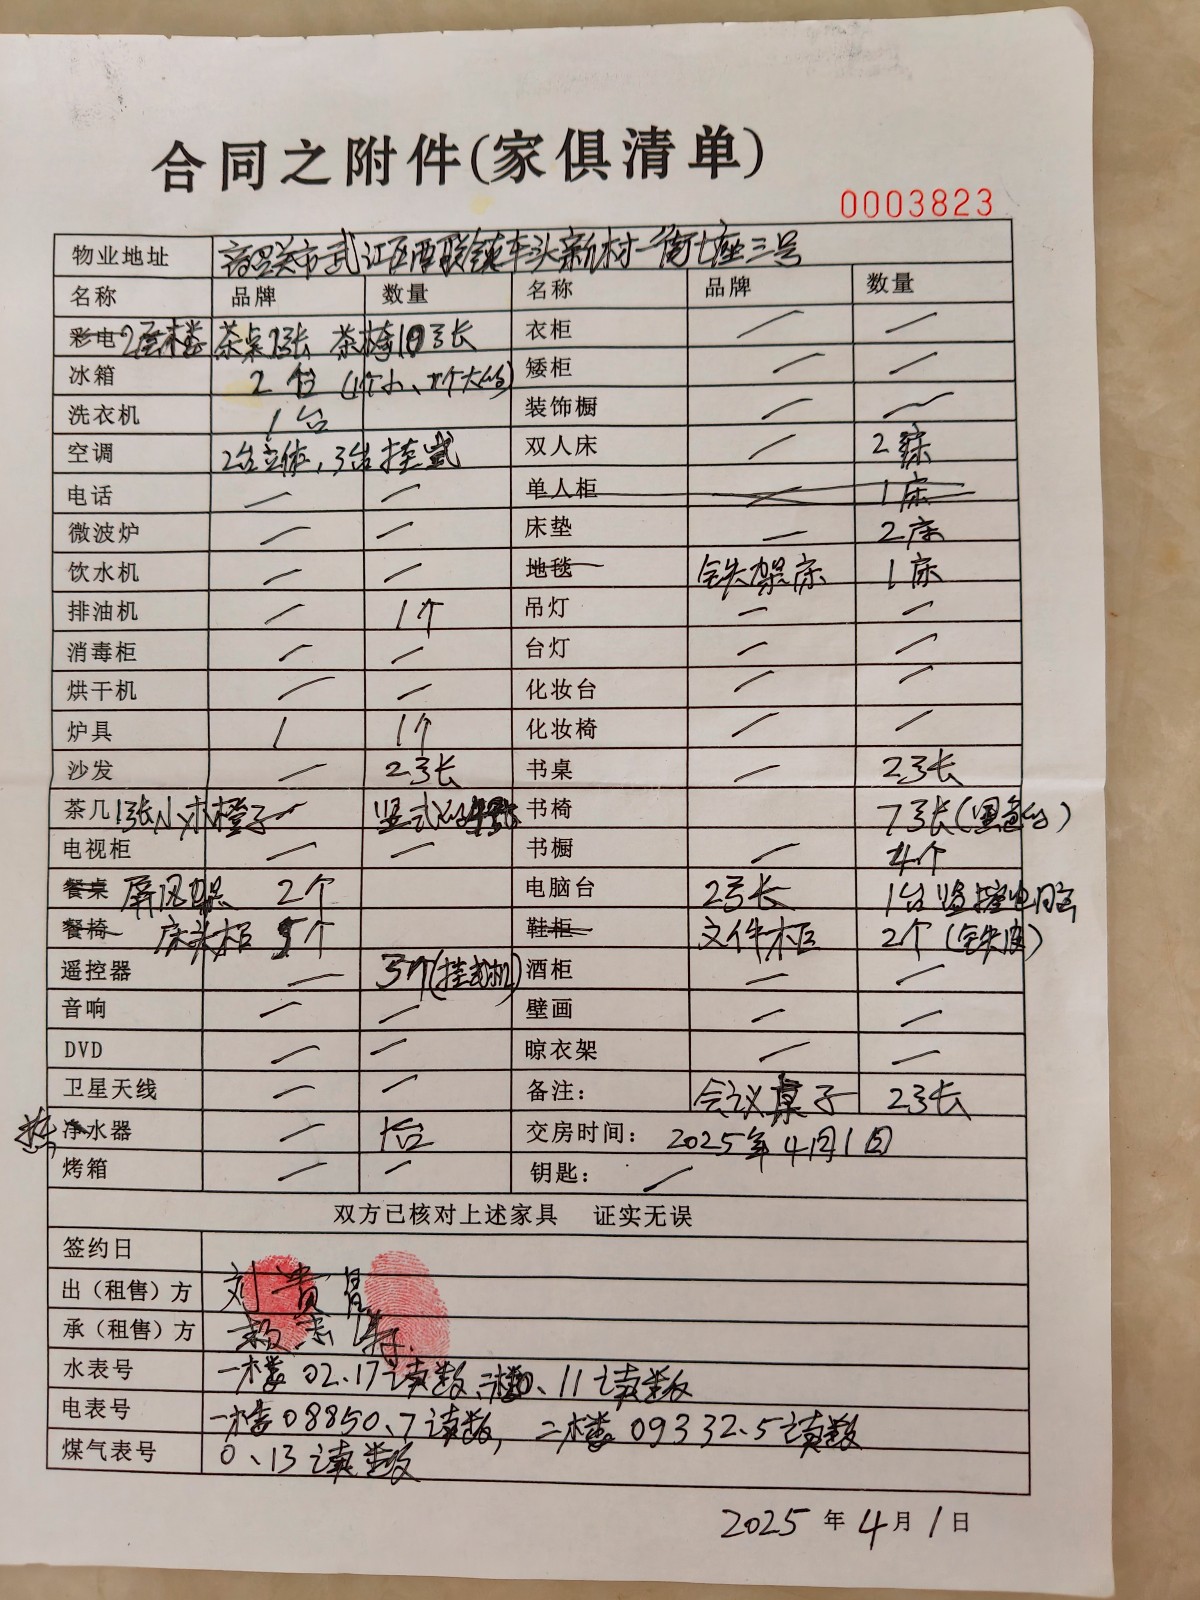 合同之附件(家俱清单)
0003823
物业地址 韶关市武江区西联镇车头新村一街七座三号
名称 品牌 数量 名称 品牌 数量
彩电 2层楼 茶桌1张 茶椅10张 衣柜 / /
冰箱 2台 (1个小、1个大的) 矮柜 / /
洗衣机 1台 装饰橱 / /
空调 2台立体,3台挂式 双人床 / 2床
电话 / / 单人柜 / 1床
微波炉 / / 床垫 / 2床
饮水机 / / 地毯 铁架床 1床
排油机 / 1个 吊灯 / /
消毒柜 / / 台灯 / /
烘干机 / / 化妆台 / /
炉具 / 1个 化妆椅 / /
沙发 / 2张 书桌 / 2张
茶几 1张小木橙子 / 竖式 书椅 7张(黑色的)
电视柜 / / 书橱 / 4个
餐桌 屏风架 2个 电脑台 2张 1台监控电脑
餐椅 床头柜 5个 鞋柜 文件柜 2个(铁皮)
遥控器 / 3个(挂式机) 酒柜 / /
音响 / / 壁画 / /
DVD / / 晾衣架 / /
卫星天线 / / 备注: 会议桌子 2张
热水器 / 1台 交房时间: 2025年4月1日
烤箱 / / 钥匙: /
双方已核对上述家具 证实无误
签约日
出(租售)方 刘贵
承(租售)方
水表号 一楼02.17读数,二楼0.11读数
电表号 一楼08850.7读数,二楼09332.5读数
煤气表号 0.13读数
2025年4月1日